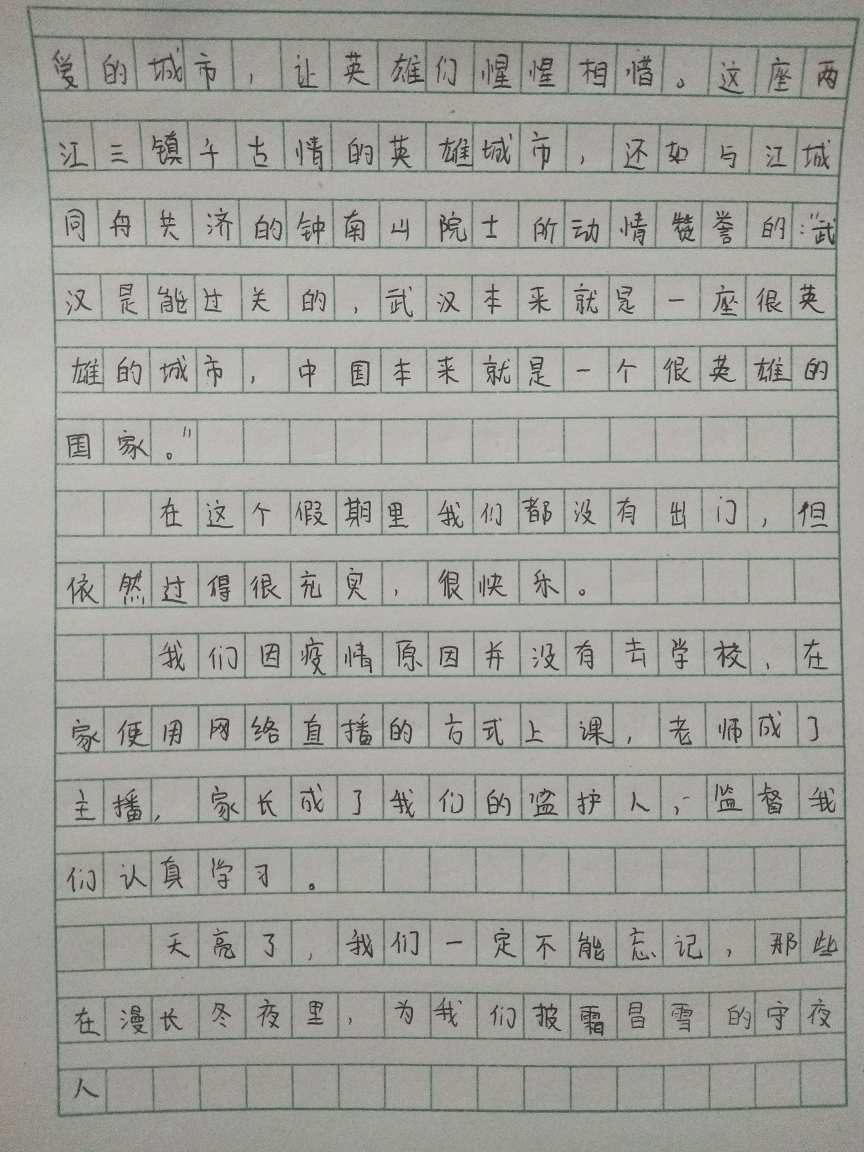 爱的城市，让英雄们惺惺相惜。这座两
江三镇千古情的英雄城市，还如与江城
同舟共济的钟南山院士所动情赞誉的:“武
汉是能过关的，武汉本来就是一座很英
雄的城市，中国本来就是一个很英雄的
国家。”
在这个假期里我们都没有出门，但
依然过得很充实，很快乐。
我们因疫情原因并没有去学校，在
家使用网络直播的方式上课，老师成了
主播，家长成了我们的监护人，监督我
们认真学习。
天亮了，我们一定不能忘记，那些
在漫长冬夜里，为我们披霜冒雪的守夜
人